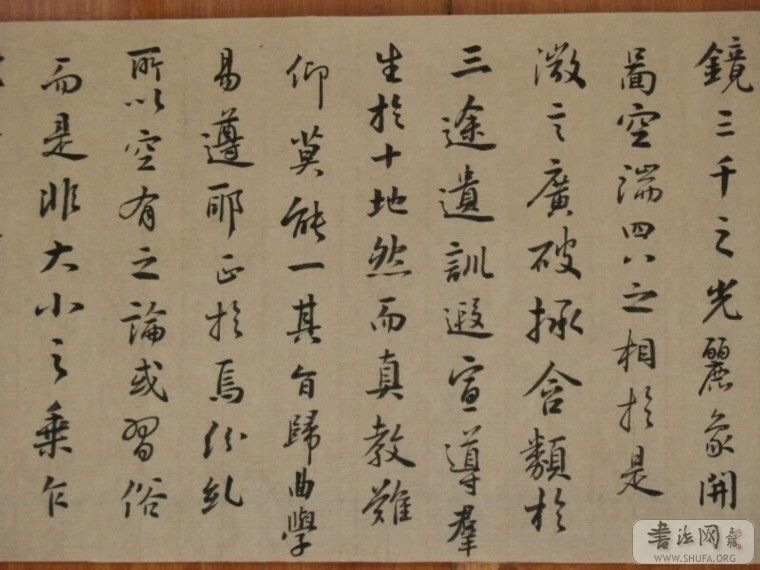 鏡三千之光麗象開
啚空端四八之相於是
微言廣被拯含類於
三途遺訓遐宣導羣
生於十地然而真教難
仰莫能一其旨歸曲學
易遵耶正於焉紛糺
所以空有之論或習俗
而是非大小之乘乍
書法网
WWW.SHUFA.ORG